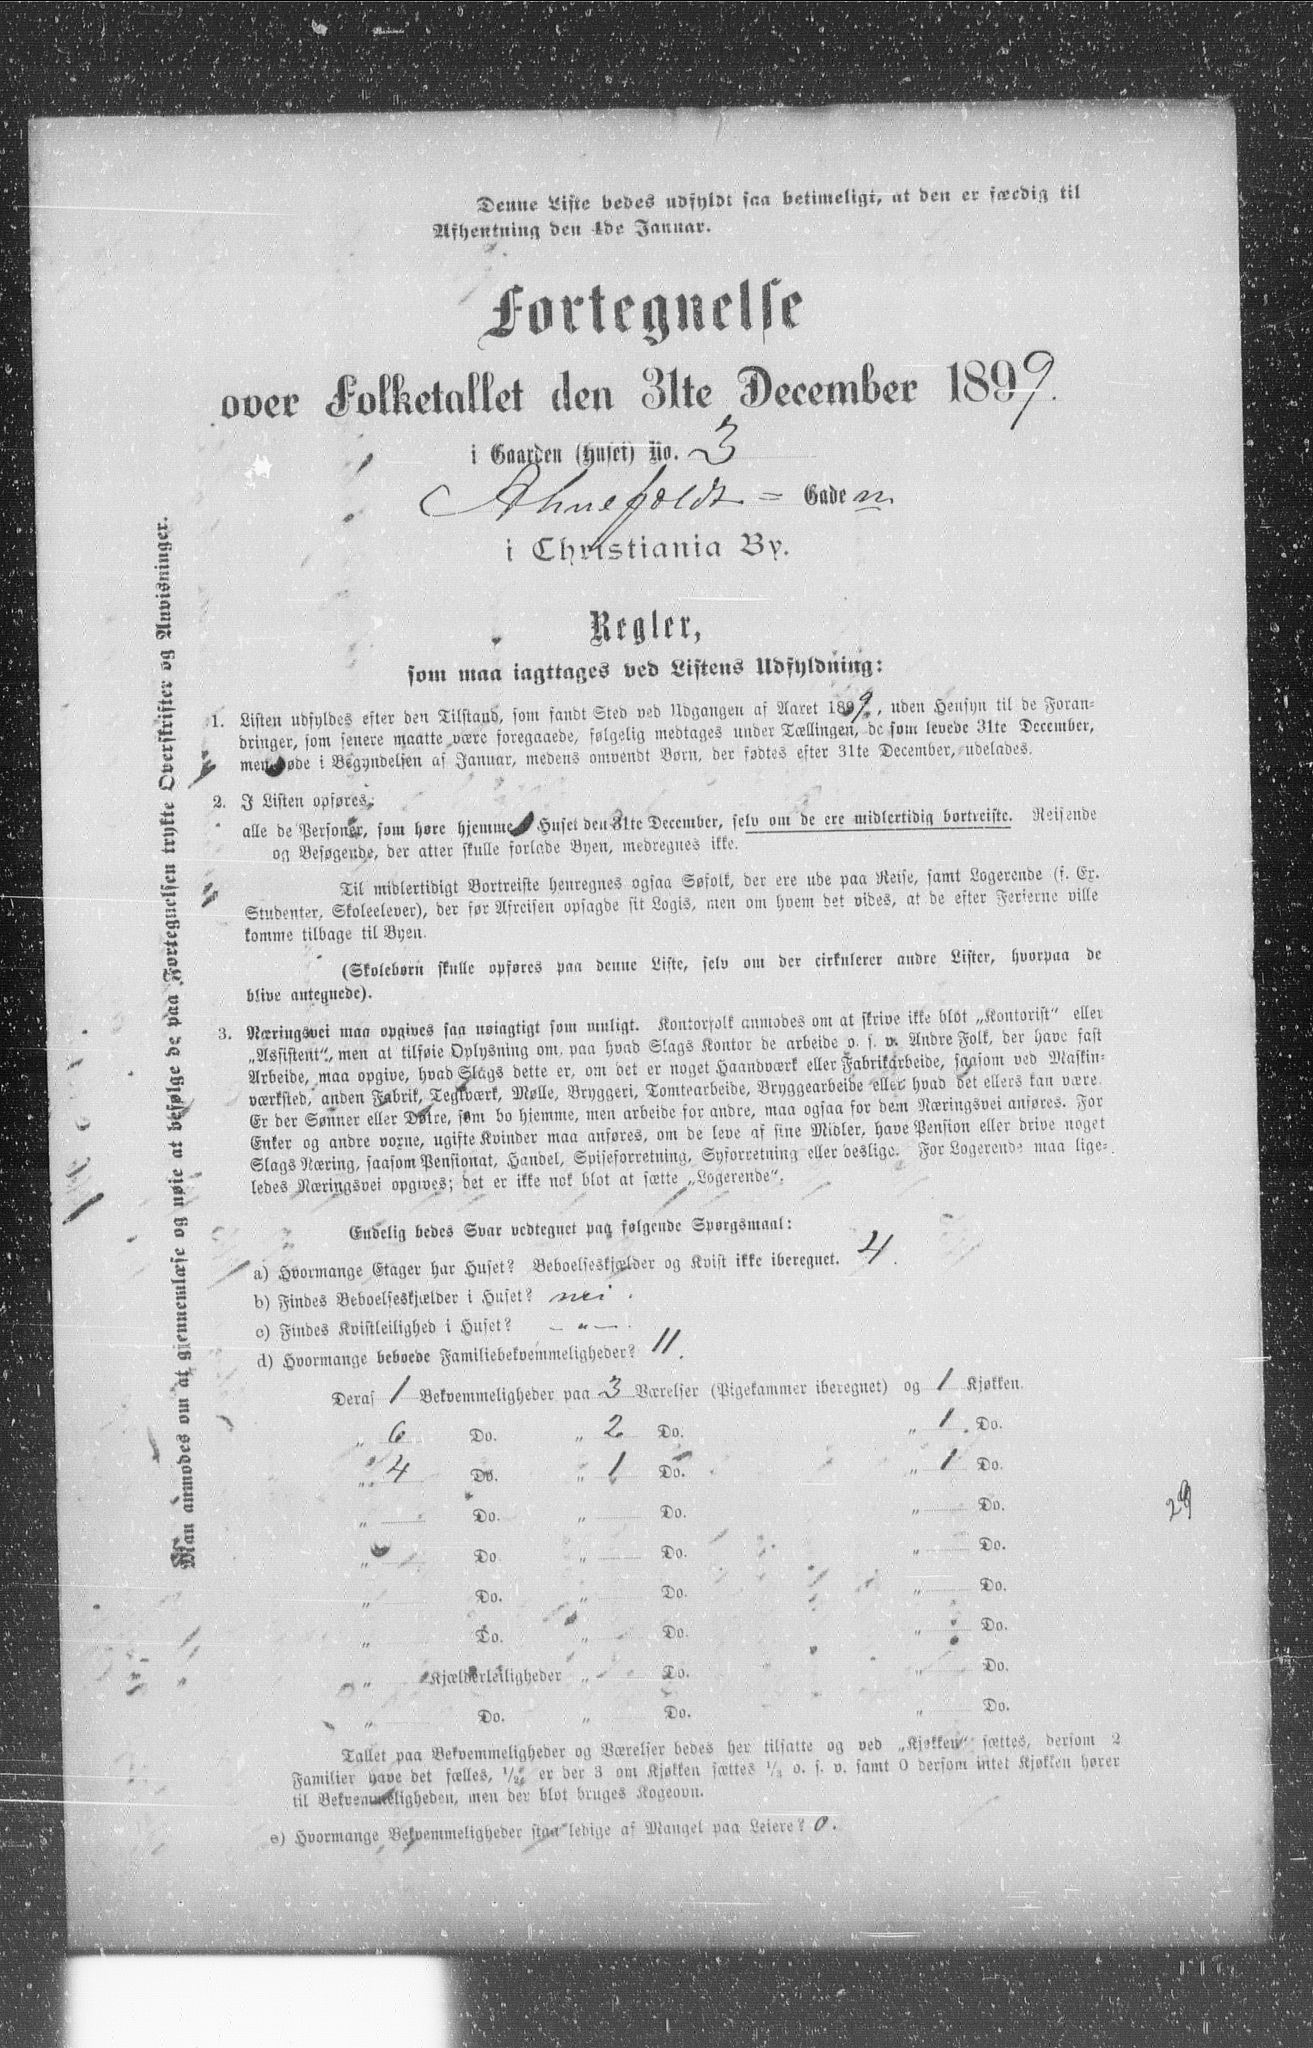 Denne Liste bedes udfyldt saa betimeligt, at den er færdig til
Afhentning den 4de Januar.
Fortegnelse
over Folketallet den 31te December 1899.
i Gaarden (Huset) No. 3
Ahnefeldt = Gaden
i Christiania By.
Regler,
som maa iagttages ved Listens Udfyldning:
1. Listen udfyldes efter den Tilstand, som fandt Sted ved Udgangen af Aaret 1899, uden Hensyn til de Foran-
dringer, som senere maatte være foregaaede, følgelig medtages under Tællingen, de som levede 31te December,
men døde i Begyndelsen af Januar, medens omvendt Børn, der fødtes efter 31te December, udelades.
2. I Listen opføres:
alle de Personer, som høre hjemme i Huset den 31te December, selv om de ere midlertidig bortreiste. Reisende
og Besøgende, der atter skulle forlade Byen, medregnes ikke.
Til midlertidigt Bortreiste henregnes ogsaa Søfolk, der ere ude paa Reise, samt Logerende (f. Ex.
Studenter, Skoleelever), der før Afreisen opsagde sit Logis, men om hvem det vides, at de efter Ferierne ville
komme tilbage til Byen.
(Skolebørn skulle opføres paa denne Liste, selv om der cirkulerer andre Lister, hvorpaa de
blive antegnede).
3. Næringsvei maa opgives saa nøiagtigt som muligt. Kontorfolk anmodes om at skrive ikke blot „Kontorist“ eller
„Assistent“, men at tilføie Oplysning om, paa hvad Slags Kontor de arbeide o. s. v. Andre Folk, der have fast
Arbeide, maa opgive, hvad Slags dette er, om det er noget Haandværk eller Fabrikarbeide, saasom ved Maskin-
værksted, anden Fabrik, Teglværk, Mølle, Bryggeri, Tomtearbeide, Bryggearbeide eller hvad det ellers kan være.
Er der Sønner eller Døtre, som bo hjemme, men arbeide for andre, maa ogsaa for dem Næringsvei anføres. For
Enker og andre voxne, ugifte Kvinder maa anføres, om de leve af sine Midler, have Pension eller drive noget
Slags Næring, saasom Pensionat, Handel, Spiseforretning, Syforretning eller deslige. For Logerende maa lige-
ledes Næringsvei opgives; det er ikke nok blot at sætte „Logerende“.
Endelig bedes Svar vedtegnet paa følgende Spørgsmaal:
a) Hvormange Etager har Huset? Beboelseskjælder og Kvist ikke iberegnet. 4.
b) Findes Beboelseskjælder i Huset? nei.
c) Findes Kvistleilighed i Huset? — „ —.
d) Hvormange beboede Familiebekvemmeligheder? 11.
Deraf 1 Bekvemmeligheder paa 3 Værelser (Pigekammer iberegnet) og 1 Kjøkken.
„ 6 Do. „ 2 Do. „ 1 Do.
„ 4 Do. „ 1 Do. „ 1 Do.
„ Do. „ Do. „ Do.
„ Do. „ Do. „ Do.
„ Do. „ Do. „ Do.
„ Do. „ Do. „ Do.
„ Kjælderleiligheder „ Do. „ Do.
„ Do. „ Do. „ Do.
Tallet paa Bekvemmeligheder og Værelser bedes her tilsatte og ved „Kjøkken“ sættes, dersom 2
Familier have det fælles, 1/2, er der 3 om Kjøkken sættes 1/3 o. s. v. samt 0 dersom intet Kjøkken hører
til Bekvemmeligheden, men der blot bruges Kogeovn.
e) Hvormange Bekvemmeligheder staa ledige af Mangel paa Leiere? 0.
Man anmodes om at gjennemlæse og nøie at befølge de paa Fortegnelsen trykte Overskrifter og Anvisninger.